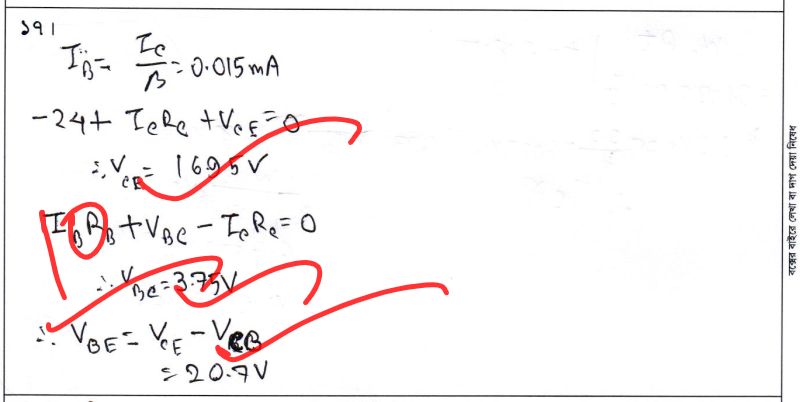 ১৭।
I_B = I_C/β = 0.015mA
-24 + I_C R_C + V_CE = 0
∴ V_CE = 16.95V
I_B R_B + V_BC - I_C R_C = 0
∴ V_BC = 3.75V
∴ V_BE = V_CE - V_CB
= 20.7V
বক্সের বাইরে লেখা বা দাগ দেয়া নিষেধ